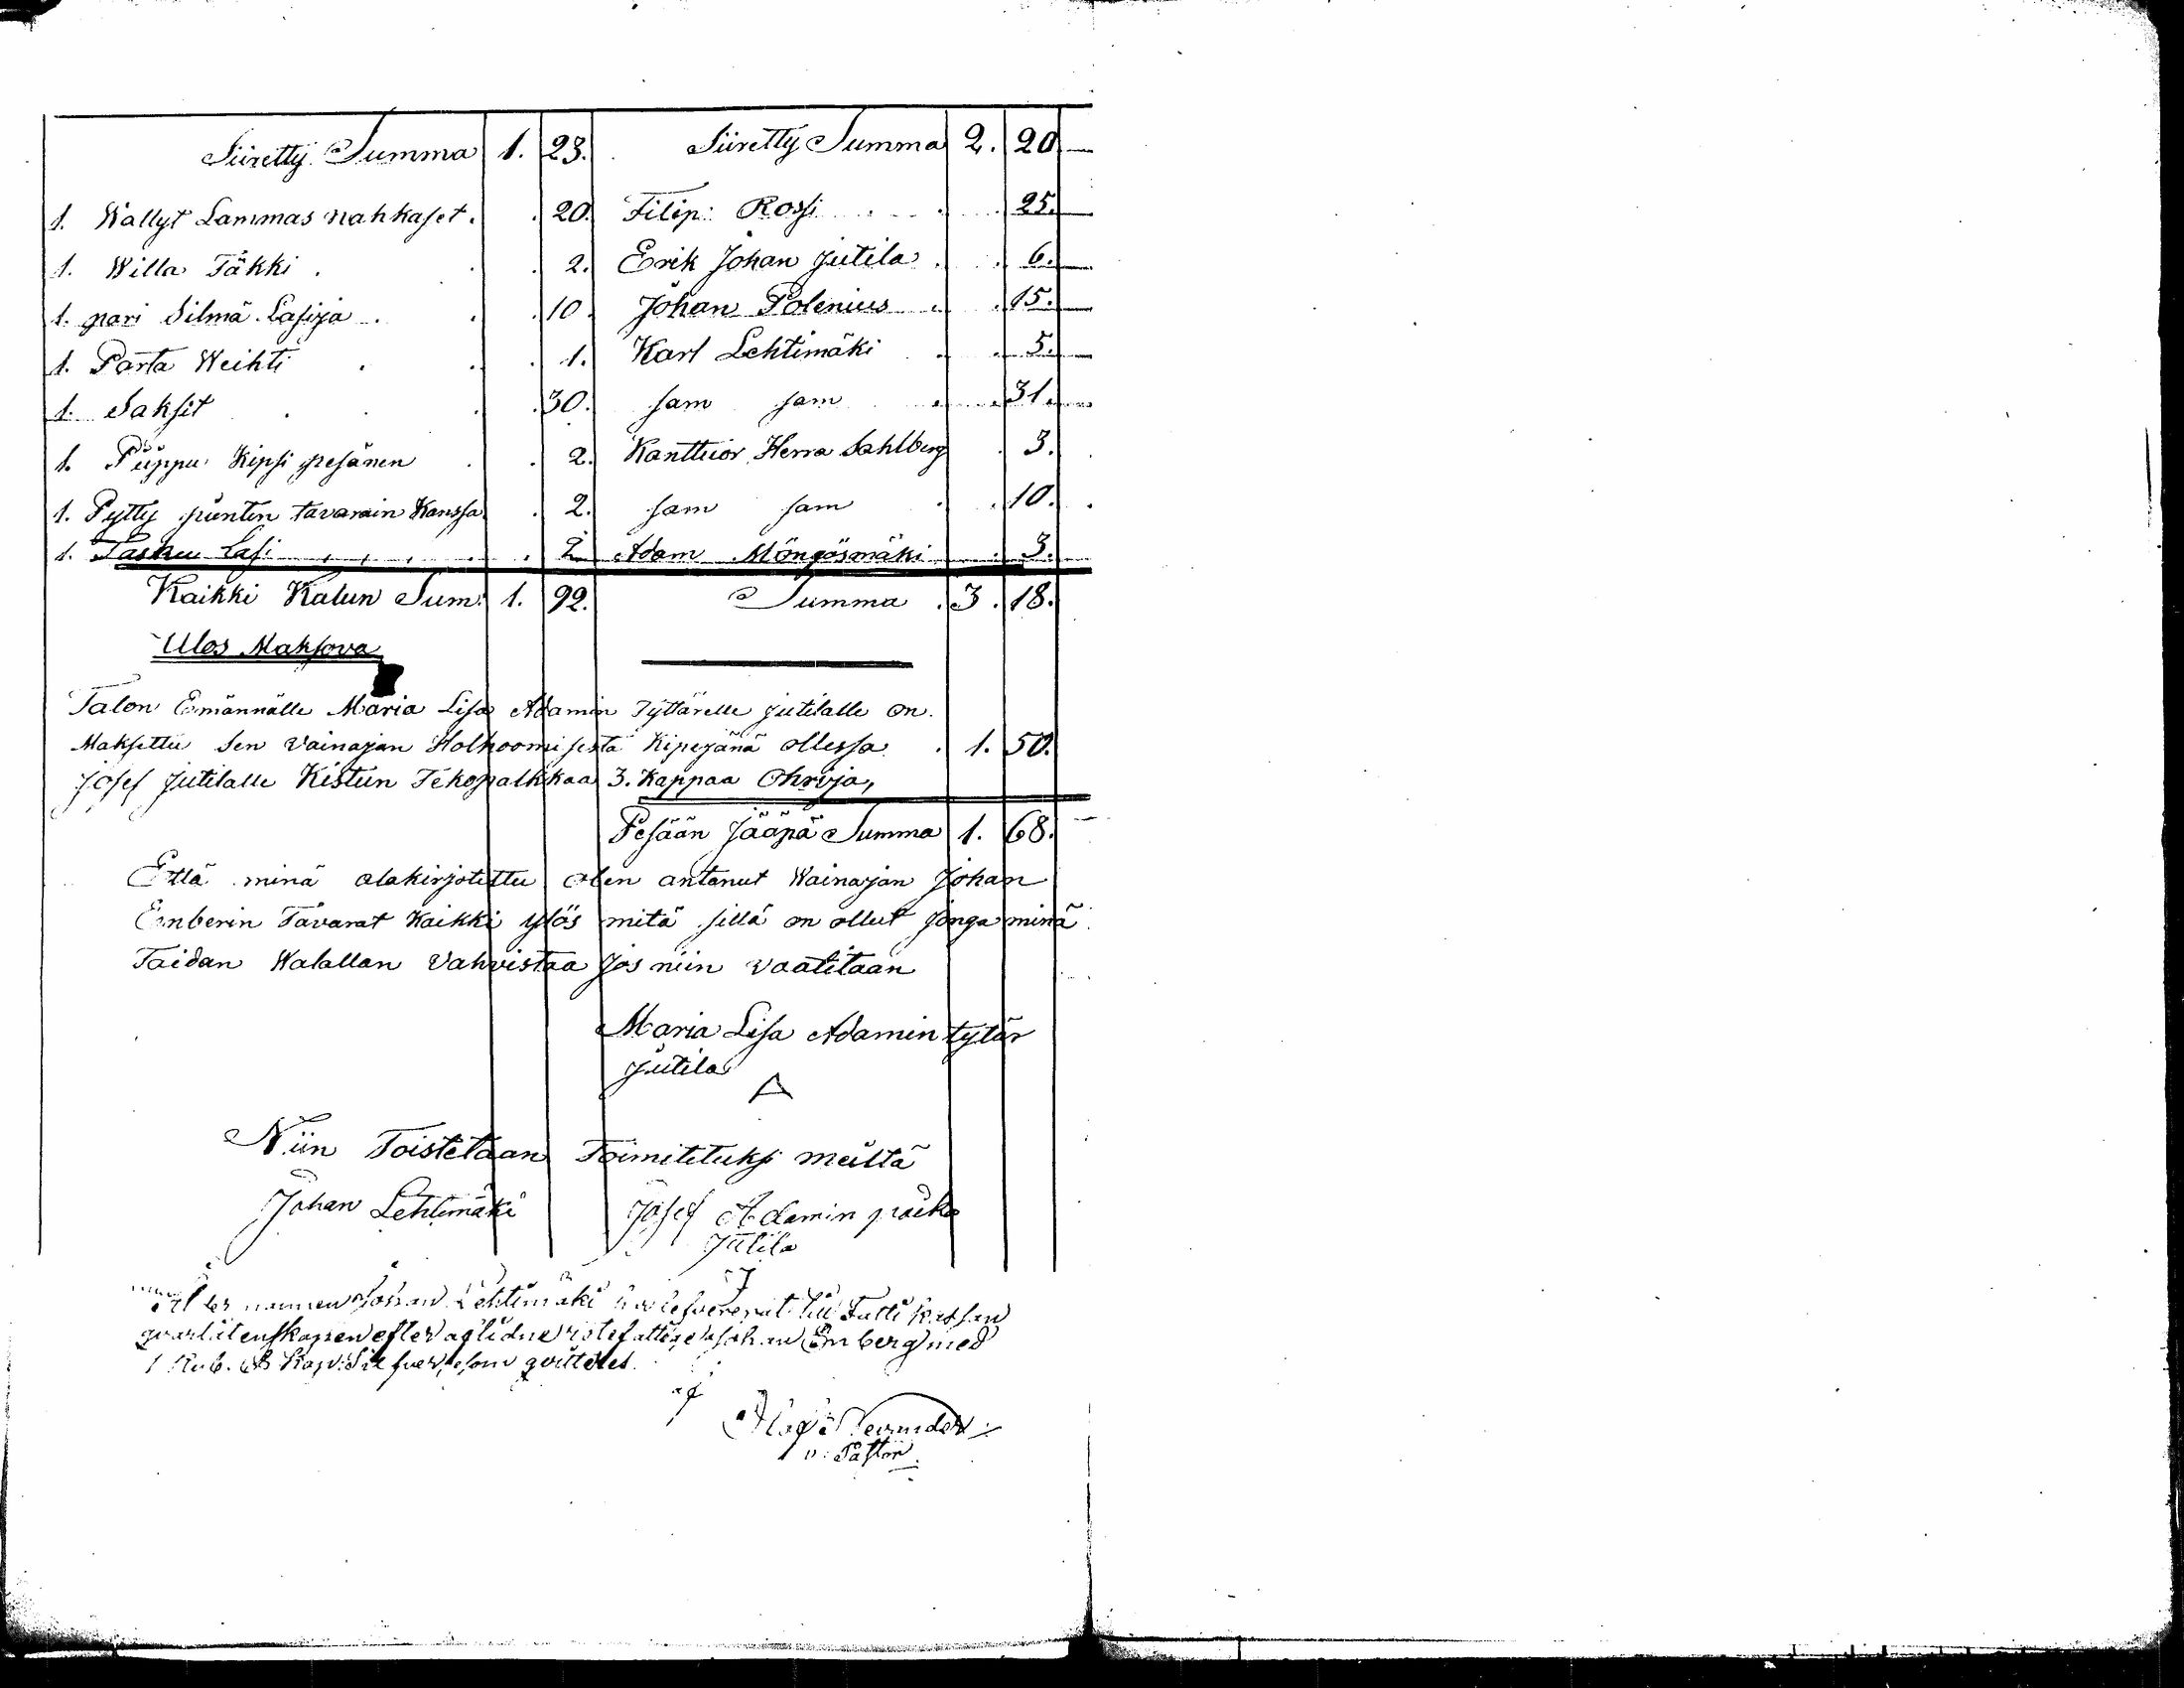 Siiretty Summa 1. 23. Siiretty Summa 2. 20
1. Wällyt Lammas nahkaset . . 20. Filip: Rossi . . . 25.
1. Willa Täkki . . . 2. Erik Johan Jutila . . 6.
1. pari Silmä Lasija . . . 10. Johan Polenius . . 15.
1. Parta Weihti . . . 1. Karl Lehtimäki . . 5.
1. Saksit . . . 30. sam sam . . 31.
1. Piippu Kipsi pesänen . . 2. Kanttuor Herra Sahlberg . 3.
1. Pytty pienten tavarain Kanssa . 2. sam sam . . 10.
1. Tasku Lasi . . . 2 Adam Möngösmäki . 3.
Kaikki Kalun Sum: 1. 92. Summa . 3. 18.
Ulos Maksova
Talon Emännälle Maria Lisa Adamin Tyttärelle Jutilalle on.
Maksettu Sen Vainajan Holhoomisesta Kipejänä ollessa . 1. 50.
Josef Jutilalle Kistun Tekopalkkaa 3. Kappaa Ohrija,
Pesään Jääpä Summa 1. 68.
Että minä alakirjotettu olen antanut Wainajan Johan
Emberin Tavarat Kaikki ylös mitä sillä on ollut jonga minä
Taidan Walallan Vahvistaa Jos niin vaatitaan
Maria Lisa Adamin tytär
Jutila
Niin Toistetaan Toimitetuksi meiltä
Johan Lehtimäki Josef Adamin poika
Jutila
namen Johan Lehtimäki till Fatti kassan
qvarlåtenskapen efter aflidne Johan Emberg med
1 Rub. 68 Kop: Silfver, som qvitteras.
af
v: Pastor